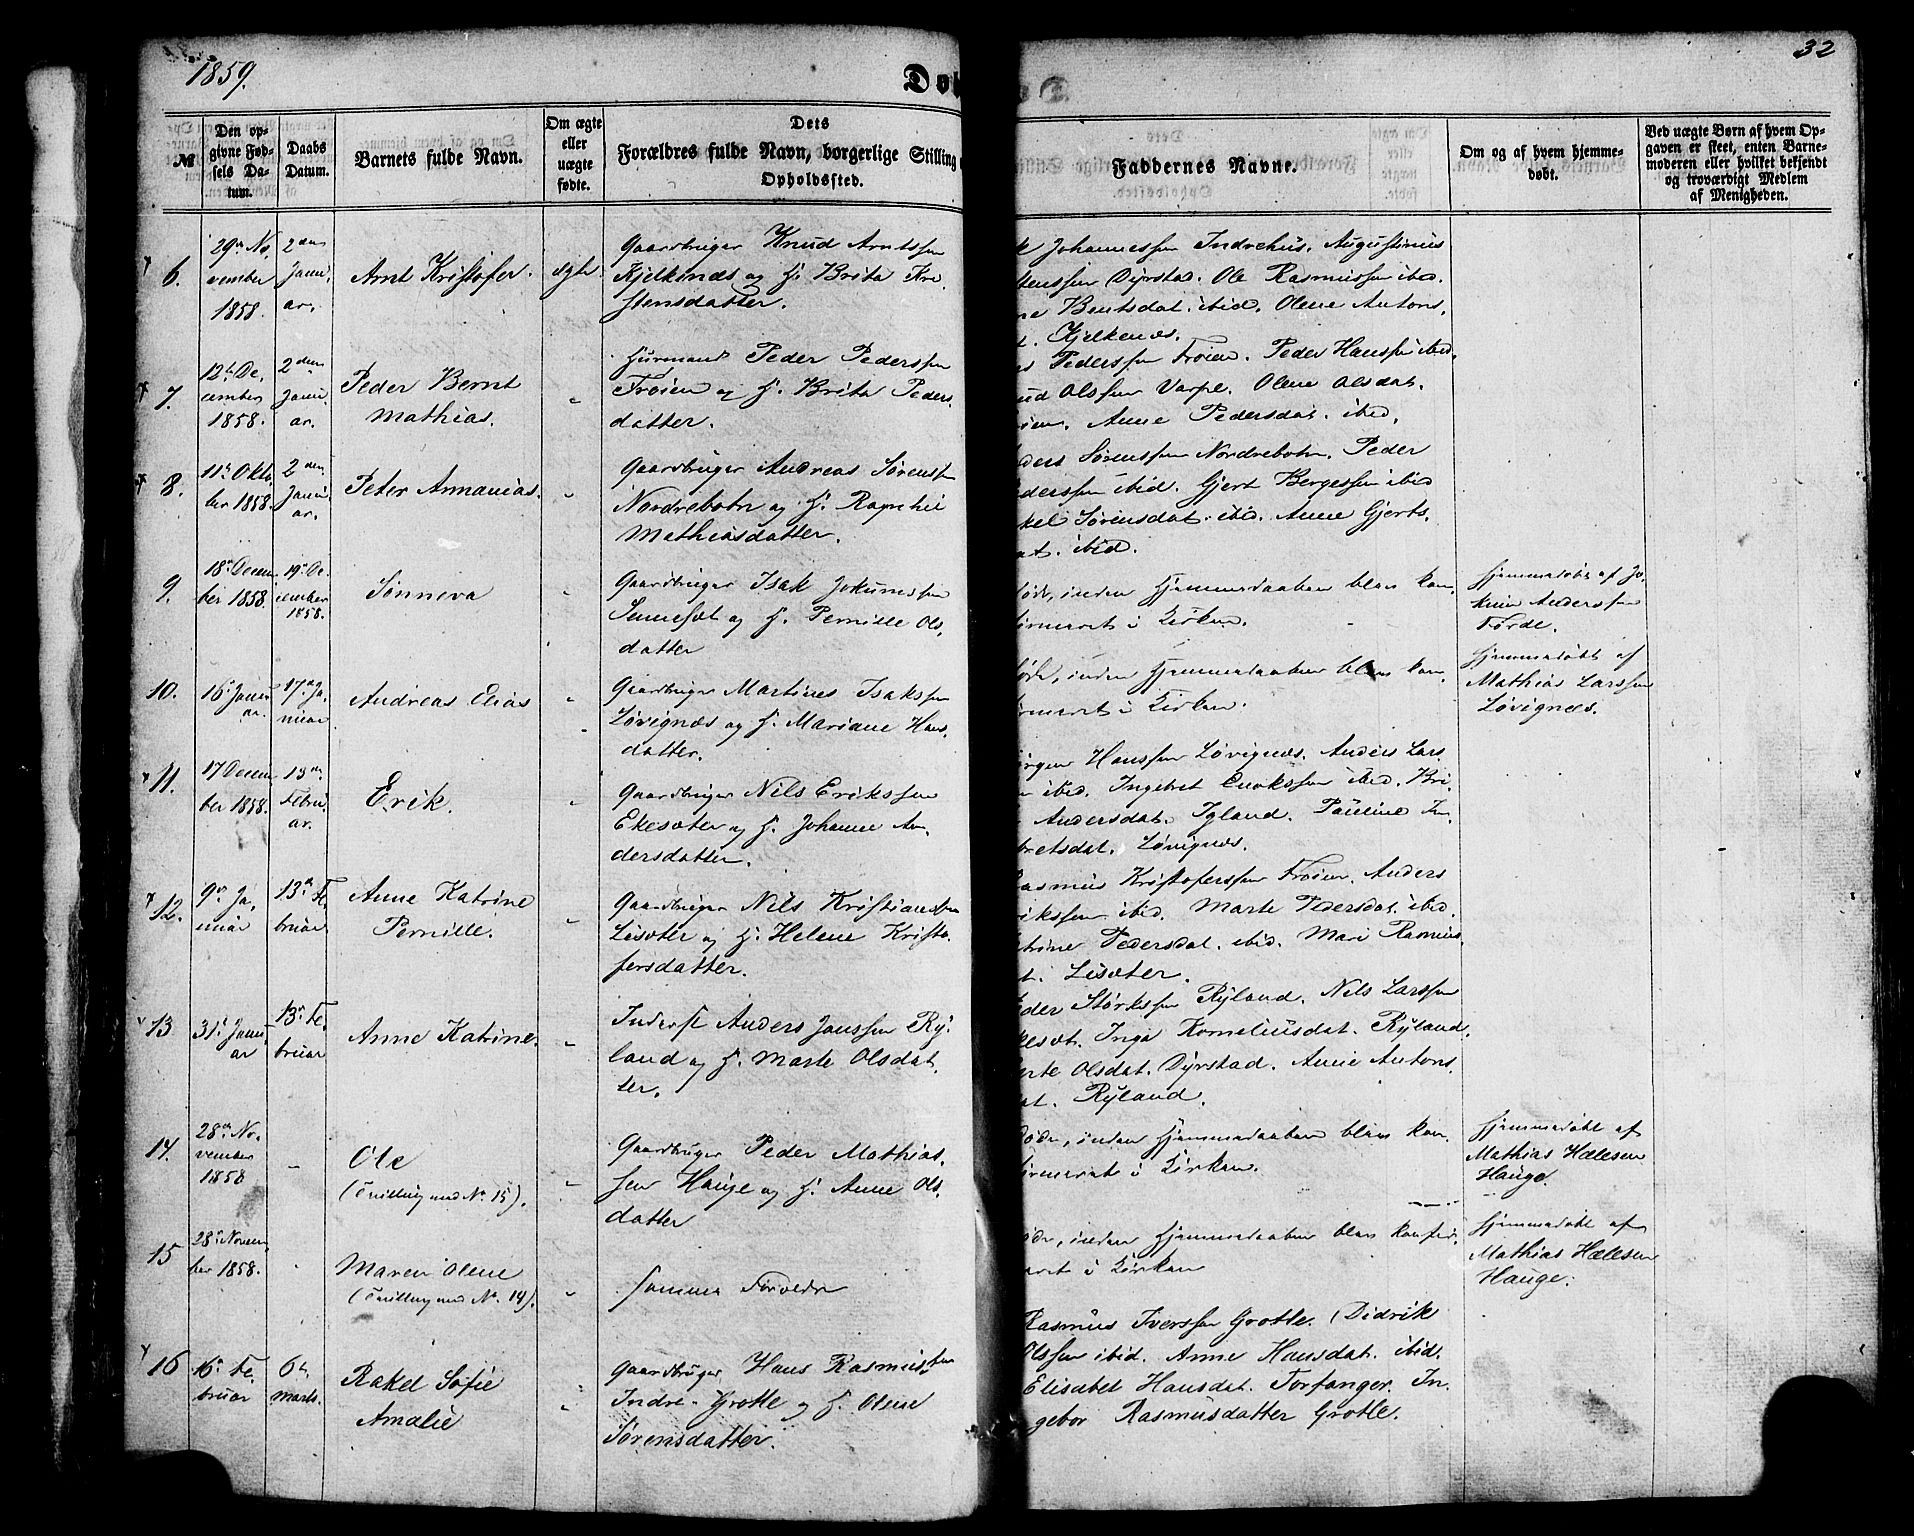 1859.
Døb
32
№
Den opgivne Fødsels Datum.
Daabs Datum.
Barnets fulde Navn.
Om ægte eller uægte fødte.
Dets Forældres fulde Navn, borgerlige Stilling
Opholdssted.
Faddernes Navne.
Om og af hvem hjemmedøbt.
Ved uægte Børn af hvem Opgaven er skeet, enten Barnemoderen eller hvilket bekjendt og troværdigt Medlem af Menigheden.
6.
29de No,
vember
1858.
2den
Janu,
ar.
Arnt Kristofer.
ægte
Gaardbruger Knud Arntssen
Kjelkenæs og H. Brita Kri,
stensdatter.
Johannessen Indrehus. Augustinus
tenssen Dyrstad. Ole Rasmussen ibid.
ne Bentsdat. ibid. Olene Antons,
t. Kjelkenæs.
7.
12te De,
cember
1858.
2den
Janu,
ar.
Peder Bernt
Mathias.
"
Huusmand Peder Pederssen
Frøien og H. Brita Peders,
datter.
s Pederssen Frøien. Peder Hanssen ibid.
ud Olssen Varpe. Olene Olsdat.
øien. Anne Pedersdat. ibid.
8.
11te Okto,
ber 1858.
2den
Janu,
ar.
Peter Annanias.
"
Gaardbruger Andreas Sørenssen
Nordrebotn og H. Ragnhil
Mathiasdatter.
ders Sørenssen Nordrebotn. Peder
derssen ibid. Gjert Bergessen ibid
kel Sørensdat. ibid. Anne Gjerts,
at. ibid.
9.
18de Decem,
ber 1858.
19de De,
cember
1858.
Sønneva
"
Gaardbruger Isak Jokumssen
Sennesæt og H. Pernille Ols,
datter
døde, inden Hjemmedaaben blev kon,
firmeret i Kirken.
Hjemmedøbt af Jo,
kum Anderssen
Førde.
10.
16de Janu,
ar.
17de Ja,
nuar
Andreas Elias
"
Gaardbruger Martinus Isakssen
Løvignæs og H. Mariane Hans,
datter.
døde, inden Hjemmedaaben blev kon,
firmeret i Kirken.
Hjemmedøbt af
Mathias Larssen
Løvignæs.
11.
17 Decem,
ber 1858.
13de
Febru,
ar.
Erik.
"
Gaardbruger Nils Erikssen
Ekesæter og H. Johanne An,
dersdatter.
ørgen Hanssen Løvignæs. Anders Lars
n ibid. Ingebret Enokssen ibid. Bri,
Andersdat. Igland. Pauline In,
bretsdat. Løvignæs.
12.
9de Ja,
nuar
13de Fe,
bruar
Anne Katrine
Pernille.
"
Gaardbruger Nils Kristianssen
Lisæter og H. Helene Kristo,
fersdatter.
Rasmus Kristoferssen Frøien. Anders
rikssen ibid. Marte Pedersdat. ibid.
trine Pedersdat. ibid. Mari Rasmus,
t. Lisæter.
13
31te Janu,
ar
13de Fe,
bruar
Anne Katrine.
"
Inderst Anders Janssen Ry,
land og H. Marte Olsdat,
ter.
eder Størkssen Ryland. Nils Larssen
kesæt. Inga Korneliusdat. Ryland.
rte Olsdat. Dyrstad. Anne Antons,
at. Ryland.
14.
28de No,
vember
1858
"
Ole
(Tvilling med No. 15).
"
Gaardbruger Peder Mathias,
sen Hauge og H. Anne Ols,
datter
døde, inden Hjemmedaaben blev kon,
firmeret i Kirken.
Hjemmedøbt af
Mathias Hælesen
Hauge.
15
28de Novem,
ber 1858.
"
Maren Olene
(Tvilling med No. 14).
"
samme Forældre
døde, inden Hjemmedaaben blev konfir,
meret i Kirken
Hjemmedøbt af
Mathias Hælesen
Hauge.
16
16de Fe,
bruar
6te
Marts.
Rakel Sofie
Amalie
"
Gaardbruger Hans Rasmussen
Indre-Grotle og H. Olene
Sørensdatter.
Rasmus Iverssen Grotle. Didrik
Olssen ibid. Anne Hansdat. ibid.
Elisabet Hansdat. Torfanger. In,
gebor Rasmusdatter Grotle.